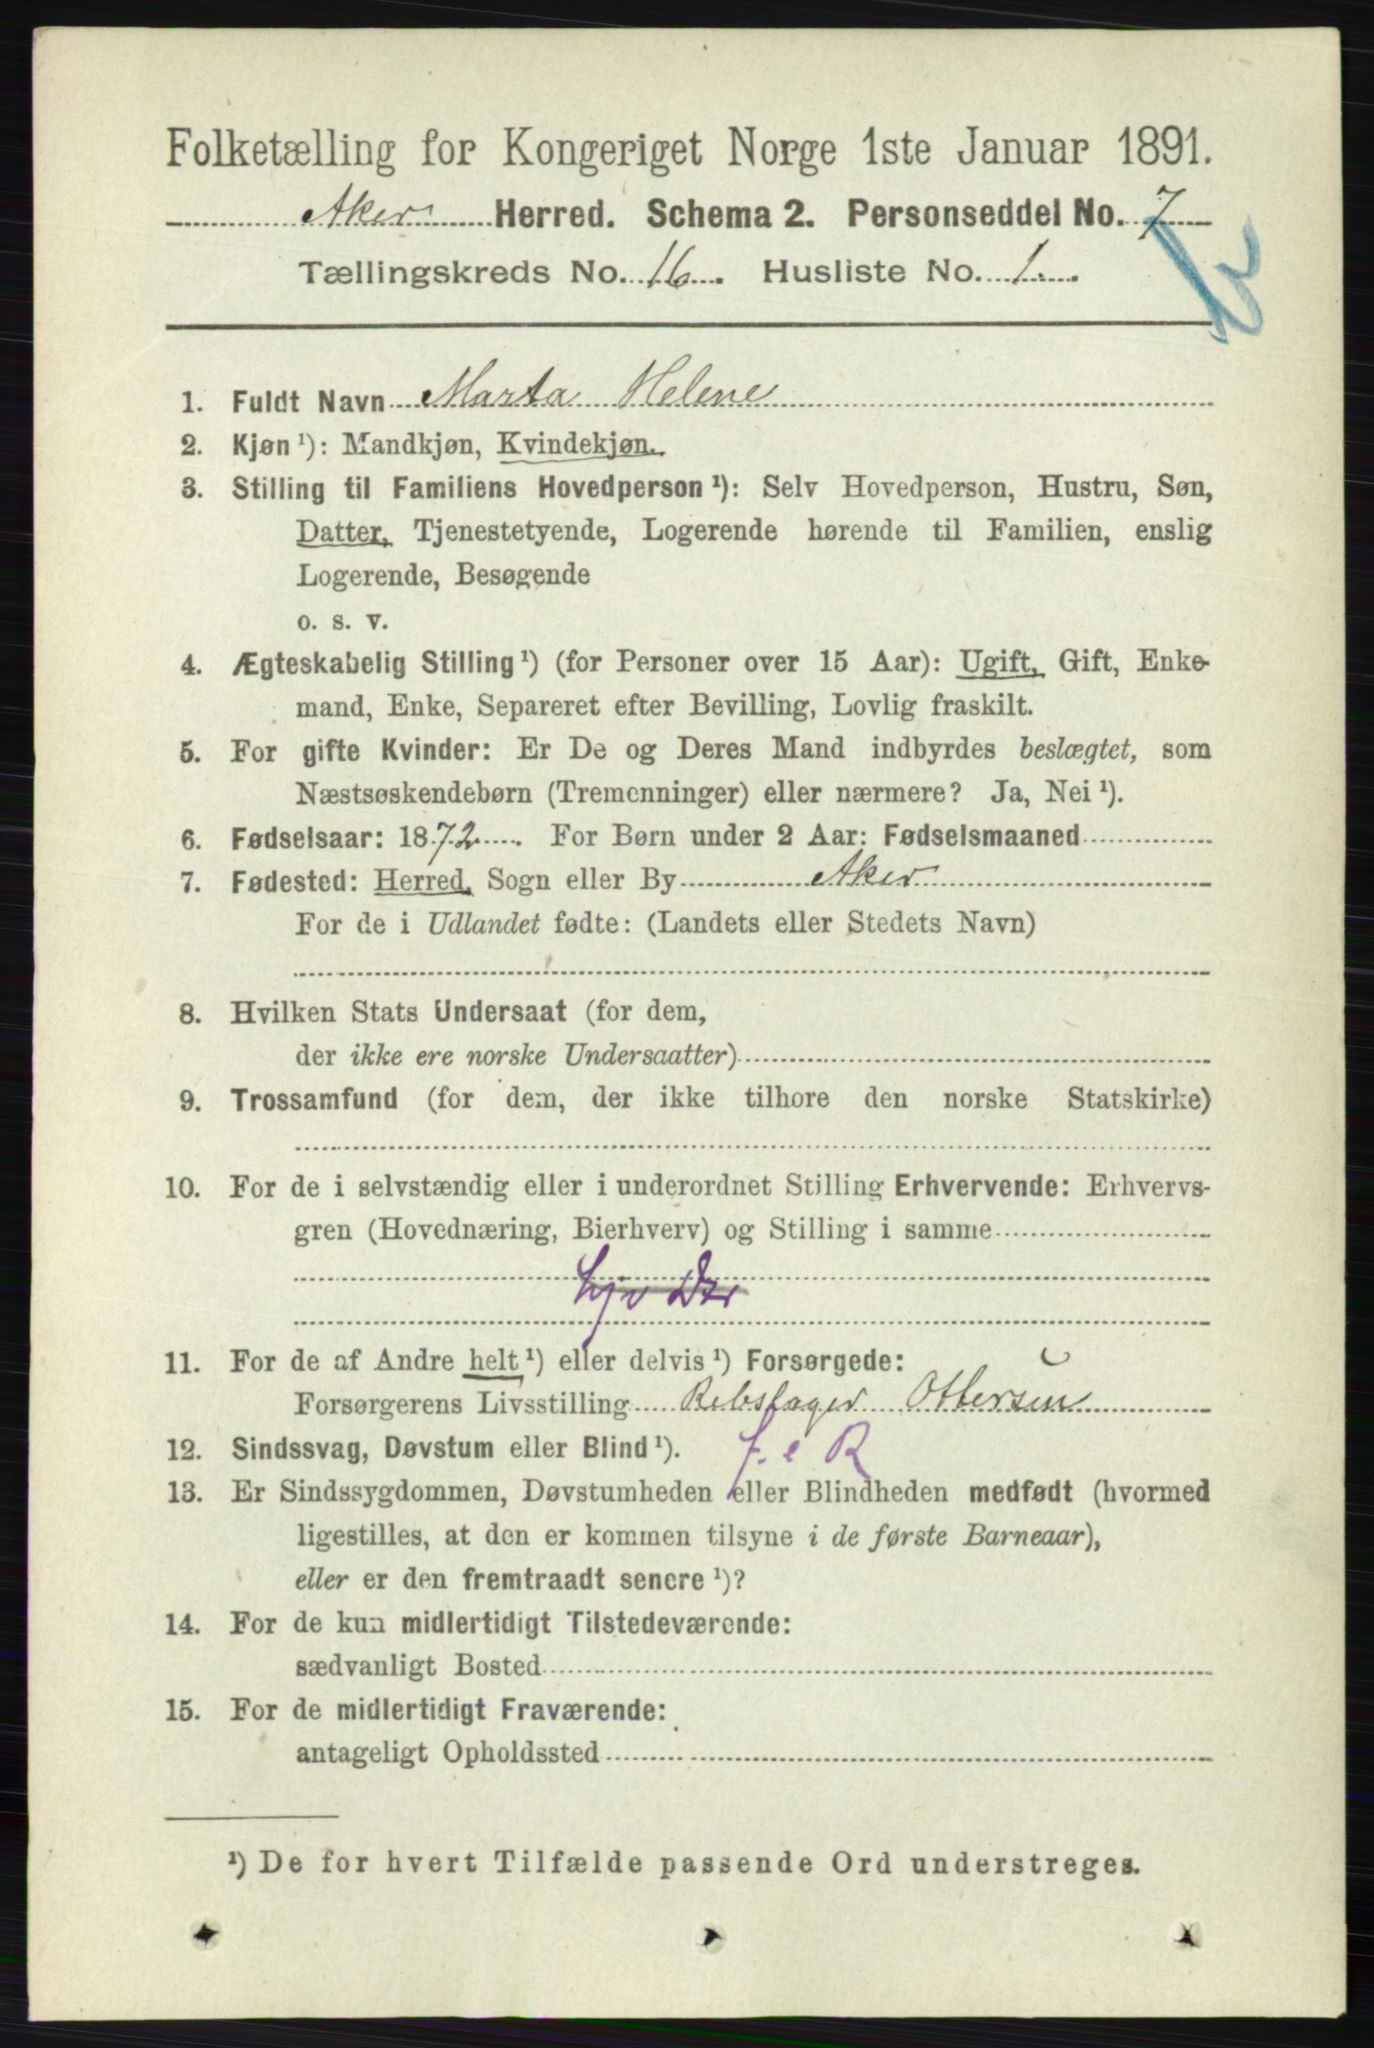 Folketælling for Kongeriget Norge 1ste Januar 1891.
Aker Herred. Schema 2. Personseddel No. 7
Tællingskreds No. 16. Husliste No. 1.
1. Fuldt Navn Marta Helene
2. Kjøn¹): Mandkjøn, Kvindekjøn.
3. Stilling til Familiens Hovedperson¹): Selv Hovedperson, Hustru, Søn,
Datter, Tjenestetyende, Logerende hørende til Familien, enslig
Logerende, Besøgende
o. s. v.
4. Ægteskabelig Stilling¹) (for Personer over 15 Aar): Ugift, Gift, Enke-
mand, Enke, Separeret efter Bevilling, Lovlig fraskilt.
5. For gifte Kvinder: Er De og Deres Mand indbyrdes beslægtet, som
Næstsøskendebørn (Tremenninger) eller nærmere? Ja, Nei¹).
6. Fødselsaar: 1872. For Børn under 2 Aar: Fødselsmaaned
7. Fødested: Herred, Sogn eller By Aker
For de i Udlandet fødte: (Landets eller Stedets Navn)
8. Hvilken Stats Undersaat (for dem,
der ikke ere norske Undersaatter)
9. Trossamfund (for dem, der ikke tilhore den norske Statskirke)
10. For de i selvstændig eller i underordnet Stilling Erhvervende: Erhvervs-
gren (Hovednæring, Bierhverv) og Stilling i samme
11. For de af Andre helt¹) eller delvis¹) Forsørgede:
Forsørgerens Livsstilling Rebslager Ottersen
12. Sindssvag, Døvstum eller Blind¹). f. e R
13. Er Sindssygdommen, Døvstumheden eller Blindheden medfødt (hvormed
ligestilles, at den er kommen tilsyne i de første Barneaar),
eller er den fremtraadt senere¹)?
14. For de kun midlertidigt Tilstedeværende:
sædvanligt Bosted
15. For de midlertidigt Fraværende:
antageligt Opholdssted
¹) De for hvert Tilfælde passende Ord understreges.